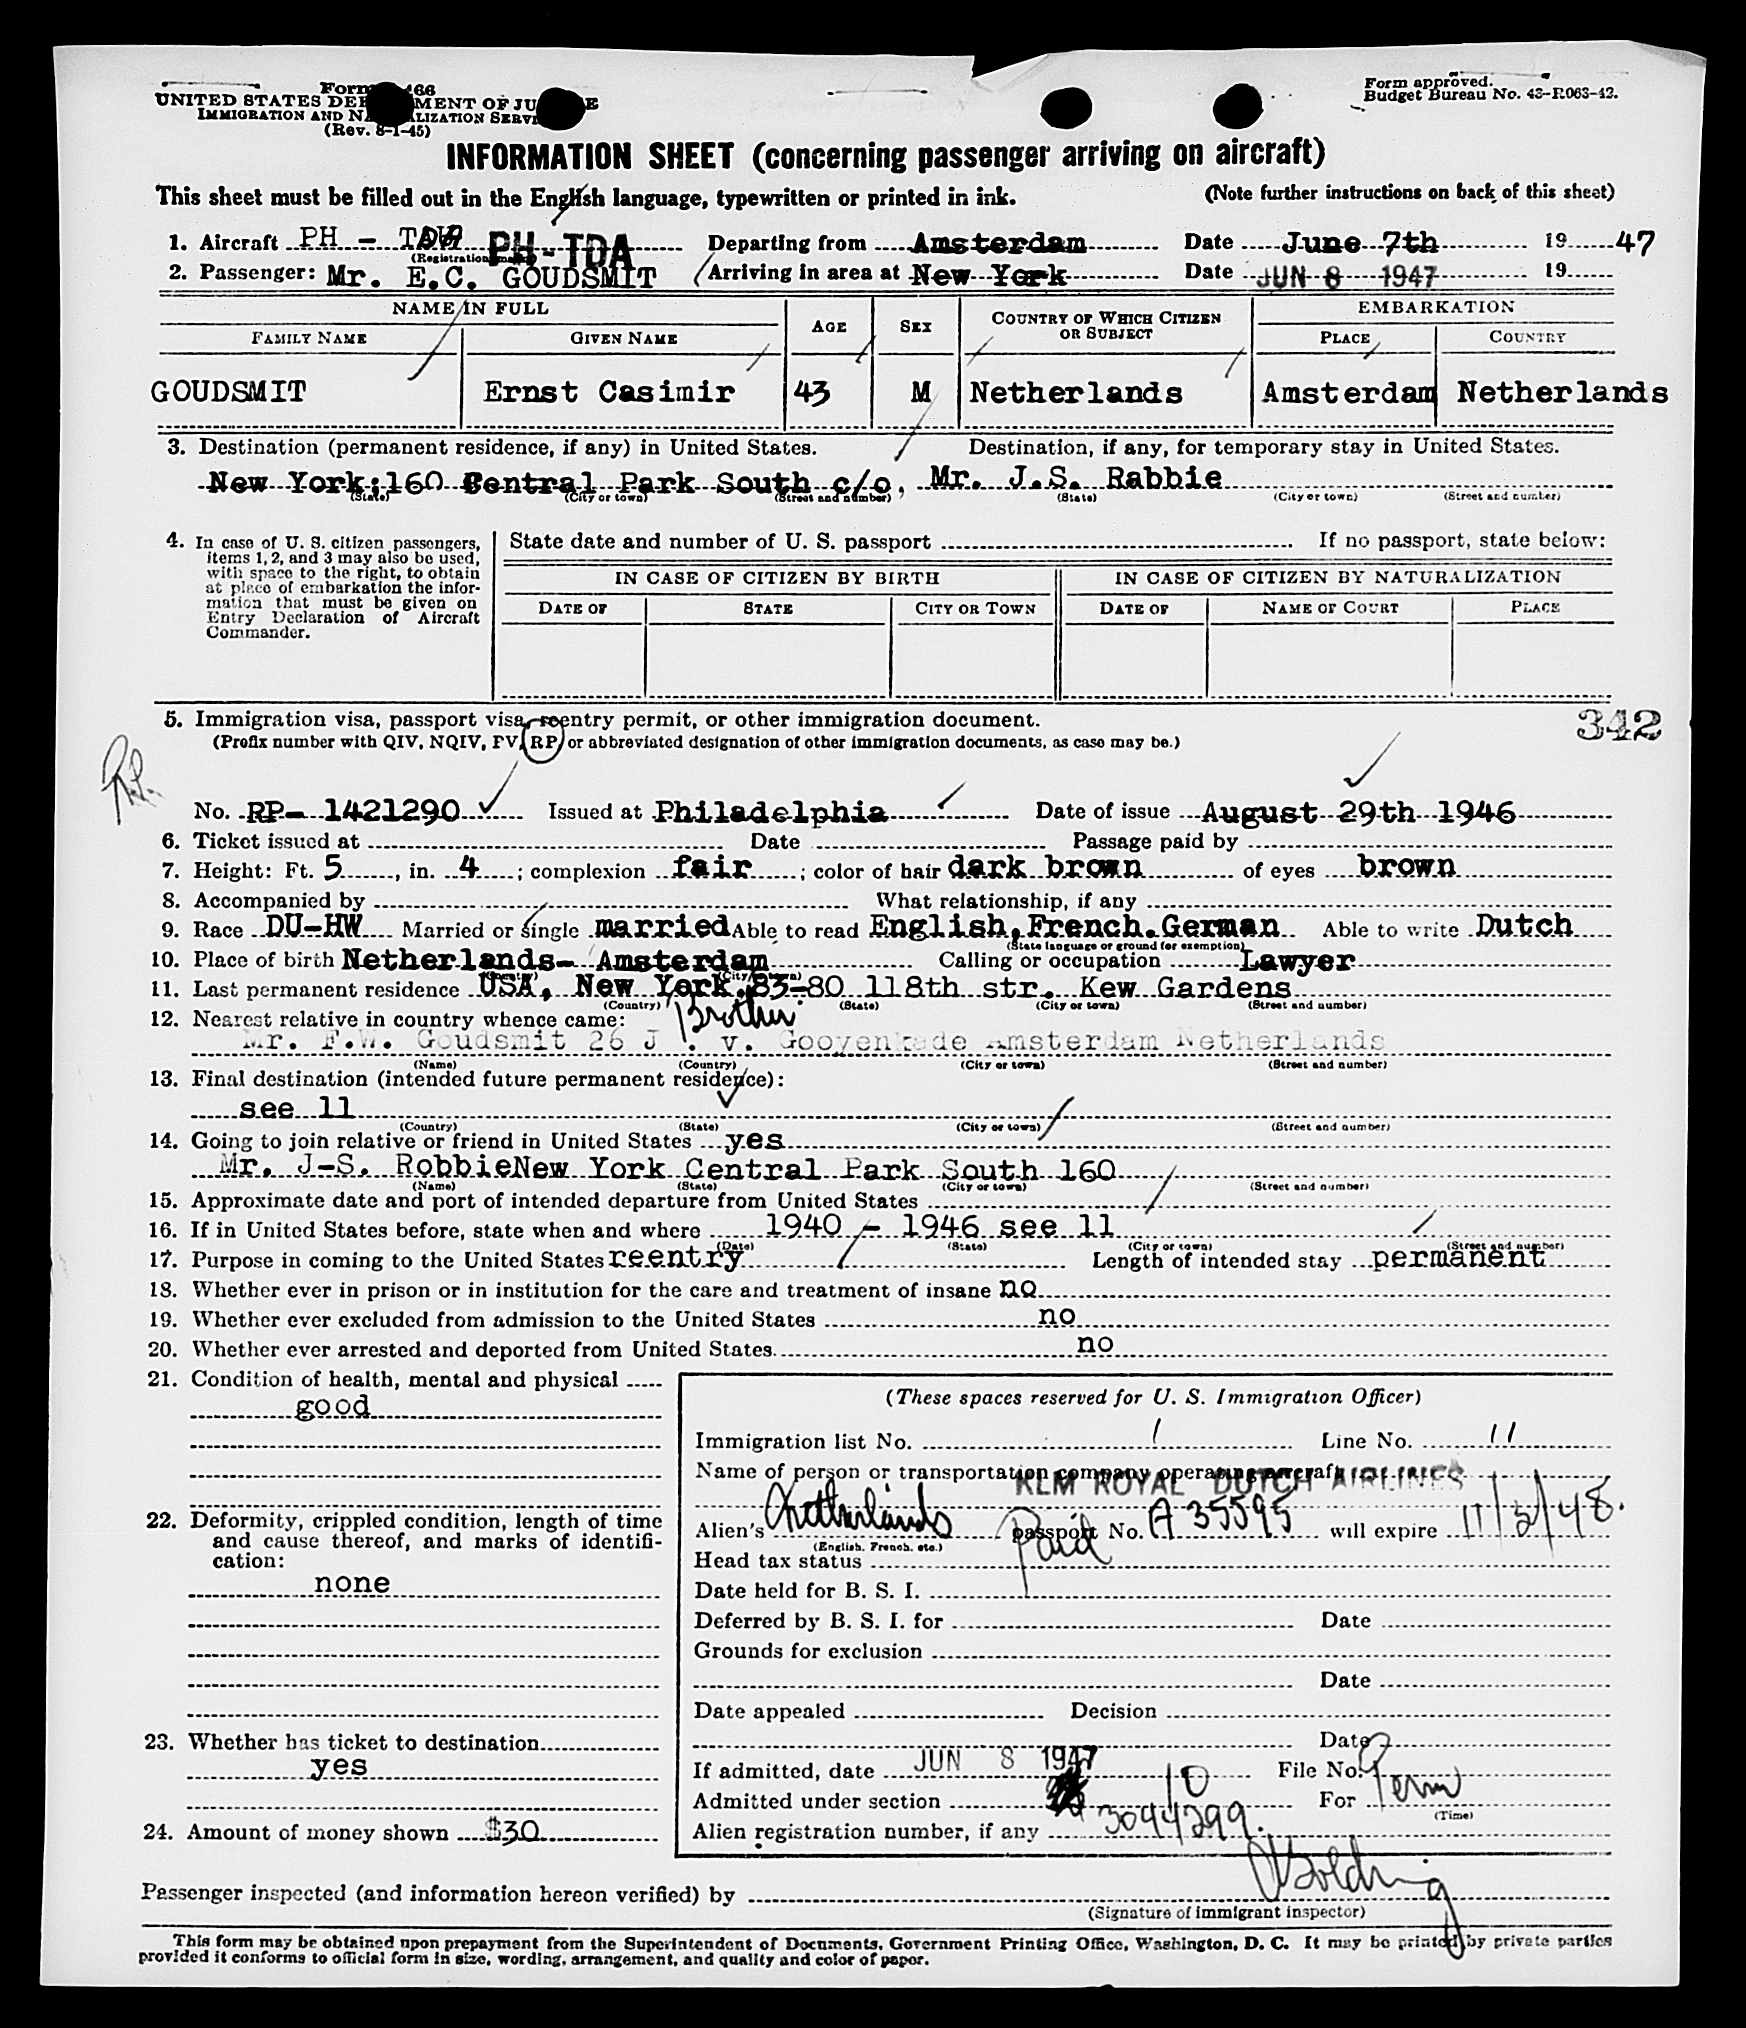 Form 466
UNITED STATES DEPARTMENT OF JUSTICE
IMMIGRATION AND NATURALIZATION SERVICE
(Rev. 8-1-45)
Form approved.
Budget Bureau No. 43-R063-42.
INFORMATION SHEET (concerning passenger arriving on aircraft)
This sheet must be filled out in the English language, typewritten or printed in ink. (Note further instructions on back of this sheet)
1. Aircraft PH - PH-TDA Departing from Amsterdam Date June 7th 19 47
(Registration
2. Passenger: Mr. E.C. GOUDSMIT Arriving in area at New York Date JUN 8 1947 19
NAME IN FULL AGE SEX COUNTRY OF WHICH CITIZEN OR SUBJECT EMBARKATION
FAMILY NAME GIVEN NAME PLACE COUNTRY
GOUDSMIT Ernst Casimir 43 M Netherlands Amsterdam Netherlands
3. Destination (permanent residence, if any) in United States. Destination, if any, for temporary stay in United States.
New York;160 Central Park South c/o, Mr. J.S. Rabbie
(State) (City or town) (Street and number) (State) (City or town) (Street and number)
4. In case of U. S. citizen passengers, items 1, 2, and 3 may also be used, with space to the right, to obtain at place of embarkation the information that must be given on Entry Declaration of Aircraft Commander.
State date and number of U. S. passport If no passport, state below:
IN CASE OF CITIZEN BY BIRTH IN CASE OF CITIZEN BY NATURALIZATION
DATE OF STATE CITY OR TOWN DATE OF NAME OF COURT PLACE
5. Immigration visa, passport visa, reentry permit, or other immigration document. 342
(Prefix number with QIV, NQIV, PV, RP, or abbreviated designation of other immigration documents, as case may be.)
No. RP- 1421290 Issued at Philadelphia Date of issue August 29th 1946
6. Ticket issued at Date Passage paid by
7. Height: Ft. 5, in. 4; complexion fair; color of hair dark brown of eyes brown
8. Accompanied by What relationship, if any
9. Race DU-HW Married or single married Able to read English,French.German Able to write Dutch
(State language or ground for exemption)
10. Place of birth Netherlands- Amsterdam Calling or occupation Lawyer
(Country) (City/town)
11. Last permanent residence USA, New York,83-80 118th str. Kew Gardens
(Country) (State) (City or town) (Street and number)
12. Nearest relative in country whence came: Brother
Mr. F.W. Goudsmit 26 J . v. Gooyenkade Amsterdam Netherlands
(Name) (Country) (City or town) (Street and number)
13. Final destination (intended future permanent residence):
see 11
(Country) (State) (City or town) (Street and number)
14. Going to join relative or friend in United States yes
Mr. J-S. RobbieNew York Central Park South 160
(Name) (State) (City or town) (Street and number)
15. Approximate date and port of intended departure from United States
16. If in United States before, state when and where 1940 - 1946 see 11
(Date) (State) (City or town) (Street and number)
17. Purpose in coming to the United States reentry Length of intended stay permanent
18. Whether ever in prison or in institution for the care and treatment of insane no
19. Whether ever excluded from admission to the United States no
20. Whether ever arrested and deported from United States. no
21. Condition of health, mental and physical
good
22. Deformity, crippled condition, length of time and cause thereof, and marks of identification:
none
23. Whether has ticket to destination
yes
24. Amount of money shown $30
(These spaces reserved for U. S. Immigration Officer)
Immigration list No. 1 Line No. 11
Name of person or transportation company operating aircraft KLM ROYAL DUTCH AIRLINES
Alien's Netherlands passport No. A 35595 will expire 11/3/48.
(English, French, etc.)
Head tax status Paid
Date held for B. S. I.
Deferred by B. S. I. for Date
Grounds for exclusion
Date
Date appealed Decision
Date
If admitted, date JUN 8 1947 File No.
Admitted under section 10 For Perm
(Time)
Alien registration number, if any 3094299.
Passenger inspected (and information hereon verified) by
(Signature of immigrant inspector)
This form may be obtained upon prepayment from the Superintendent of Documents, Government Printing Office, Washington, D. C. It may be printed by private parties
provided it conforms to official form in size, wording, arrangement, and quality and color of paper.